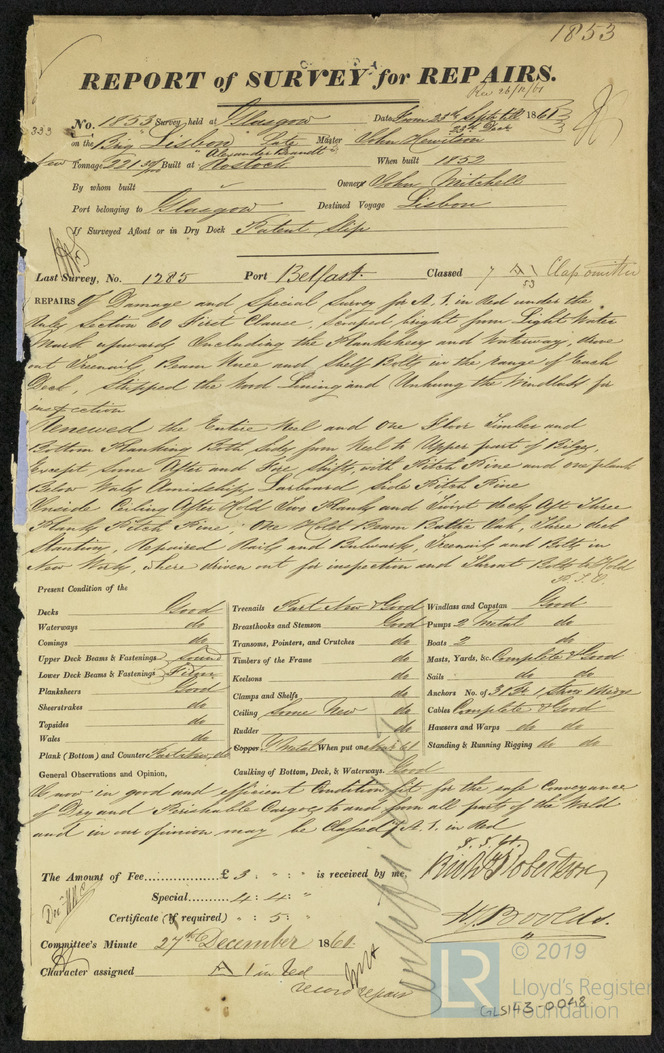 1853
REPORT of SURVEY for REPAIRS.
Rec 26/12/61
No. 1853 Survey held at Glasgow Date, From 23rd Sept till 1861
23rd Dec
on the Brig "Lisbon" late Master John
"Alexander
Tonnage 221 Built at Rostock When built 1852
By whom built Owner John Mitchell
Port belonging to Glasgow Destined Voyage Lisbon
If Surveyed Afloat or in Dry Dock Patent Slip
Last Survey, No. 1285 Port Belfast Classed 7 A 1 Class omitted
53
REPAIRS Of Damage and Special Survey for A. 1. in Red under the
Rules Section 60 First Clause, Scraped bright from Light Water
Mark upwards Including the Planksheers and Waterways, drove
out Treenails, Beam Knee and Shelf Bolts in the range of Each
Deck, Stripped the Wood Lining and Unhung the Windlass for
inspection
Renewed the Entire Keel and One Floor Timber and
Bottom Planking Both Sides from Keel to Upper part of Bilges,
Except some After and Fore Shifts, with Pitch Pine and one plank
Below Wales Amidships, Larboard Side Pitch Pine
Inside Ceiling After Hold Two Planks and Twixt decks Aft Three
Planks Pitch Pine, One Hold Beam Baltic Oak, Three deck
Stantions, Repaired Rails and Bulwarks, Treenails and Bolts in
New Work, where driven out for inspection and Throat Bolts to Hold
P.T.O.
Present Condition of the
Decks Good
Waterways do
Comings do
Upper Deck Beams & Fastenings Sound
Lower Deck Beams & Fastenings
Planksheers Good
Sheerstrakes do
Topsides do
Wales do
Plank (Bottom) and Counter Part New, do
Treenails Part New & Good
Breasthooks and Stemson Good
Transoms, Pointers, and Crutches do
Timbers of the Frame do
Keelsons do
Clamps and Shelfs do
Ceiling Some New do
Rudder do
Copper Y Metal When put on Nov 61
Caulking of Bottom, Deck, & Waterways. Good
Windlass and Capstan Good
Pumps 2 Metal do
Boats 2 do
Masts, Yards, &c. Complete & Good
Sails do do
Anchors No. of 3 Br 1 Stream Kedge
Cables Complete & Good
Hawsers and Warps do do
Standing & Running Rigging do do
General Observations and Opinion,
Is now in good and efficient Condition fit for the safe Conveyance
of Dry and Perishable Cargoes to and from all parts of the World
and in our opinion may be Classed 7 A. 1. in Red
The Amount of Fee £ 3 " : " is received by me,
Robertson
Special 4: 4: "
Certificate (if required) " : 5 :
Committee's Minute 27th December 1861
Character assigned A 1 in Red
record repairs
© 2019
LR
Lloyd's Register
Foundation
GLS143-0048